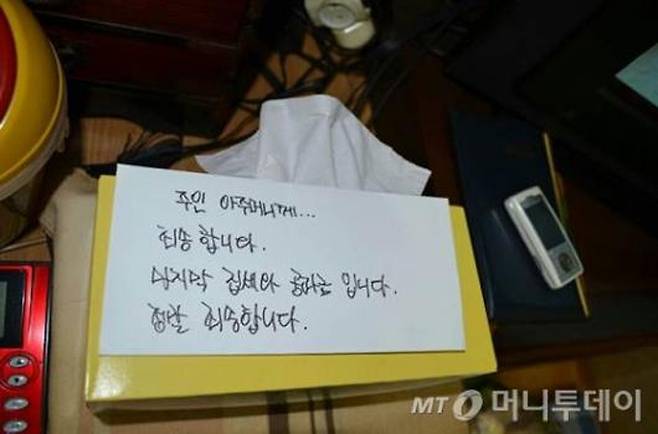 주인 아주머니께...
죄송합니다.
마지막 집세와 공과금 입니다.
정말 죄송합니다.
MT 머니투데이